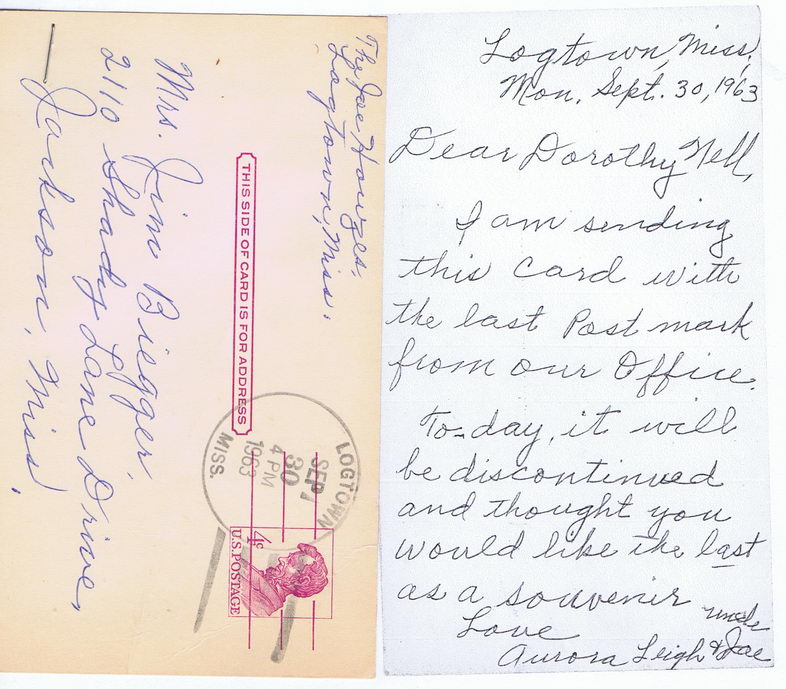 The Joe Houzes,
Logtown, Miss.
THIS SIDE OF CARD IS FOR ADDRESS
LOGTOWN
SEP
30
4 PM
1963
MISS.
4¢
U.S. POSTAGE
Mrs. Jim Biggar,
2110 Shady Lane Drive,
Jackson, Miss.
Logtown, Miss.
Mon. Sept. 30, 1963
Dear Dorothy Nell,
I am sending
this card with
the last Post mark
from our Office.
To-day, it will
be discontinued
and thought you
would like the last
as a souvenir
Love
uncle
Aurora Leigh & Joe